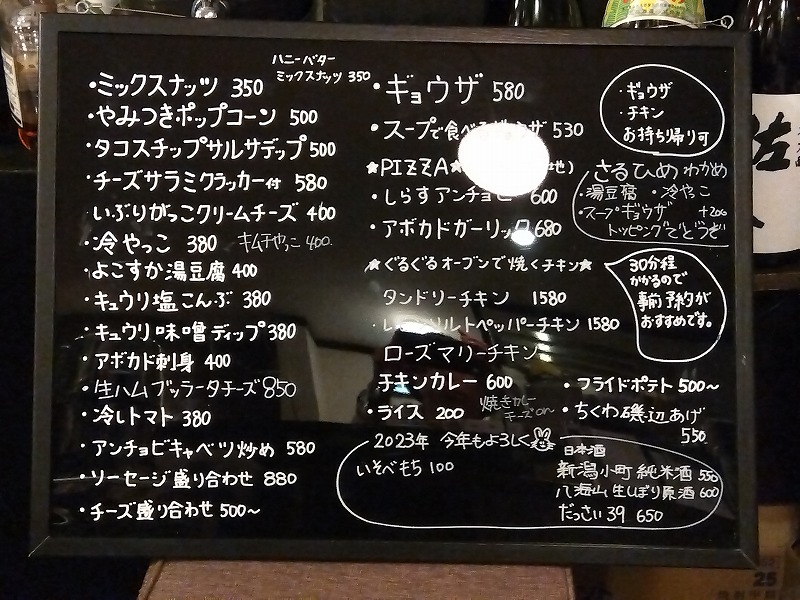 ハニーバター
ミックスナッツ 350
・ミックスナッツ 350
・やみつきポップコーン 500
・タコスチップサルサディップ 500
・チーズサラミクラッカー付 580
・いぶりがっこクリームチーズ 400
・冷やっこ 380 キムチやっこ 400
・よこすか湯豆腐 400
・キュウリ塩こんぶ 380
・キュウリ味噌ディップ 380
・アボカド刺身 400
・生ハムブッラータチーズ 850
・冷しトマト 380
・アンチョビキャベツ炒め 580
・ソーセージ盛り合わせ 880
・チーズ盛り合わせ 500〜
・ギョウザ 580
・スープで食べるギョウザ 530
★PIZZA★ 地)
・しらすアンチョビ 600
・アボカドガーリック 680
★ぐるぐるオーブンで焼くチキン★
タンドリーチキン 1580
ソルトペッパーチキン 1580
ローズマリーチキン
チキンカレー 600
・ライス 200 焼きカレー
チーズon
・ギョウザ
・チキン
お持ち帰り可
さるひめわかめ
・湯豆腐 ・冷やっこ
・スープギョウザ +200
トッピングでどうぞ
30分程
かかるので
事前予約が
おすすめです。
・フライドポテト 500〜
・ちくわ磯辺あげ
550
2023年 今年もよろしく
いそべもち 100
日本酒
新潟小町 純米酒 550
八海山 生しぼり原酒 600
だっさい39 650
佐
25